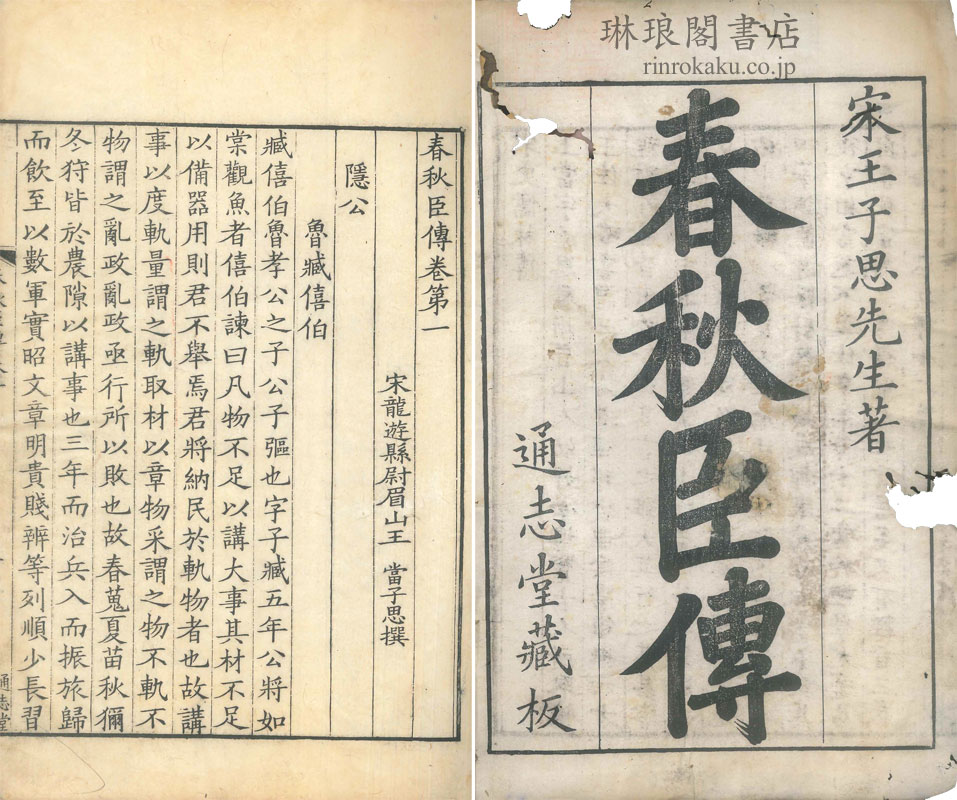 琳琅閣書店
rinrokaku.co.jp
宋王子思先生著
春秋臣傳
通志堂藏板
春秋臣傳卷第一
宋龍遊縣尉眉山王 當子思撰
隱公
魯臧僖伯
臧僖伯魯孝公之子公子彄也字子臧五年公將如
棠觀魚者僖伯諫曰凡物不足以講大事其材不足
以備器用則君不舉焉君將納民於軌物者也故講
事以度軌量謂之軌取材以章物采謂之物不軌不
物謂之亂政亂政亟行所以敗也故春蒐夏苗秋獮
冬狩皆於農隙以講事也三年而治兵入而振旅歸
而飲至以數軍實昭文章明貴賤辨等列順少長習
通志堂